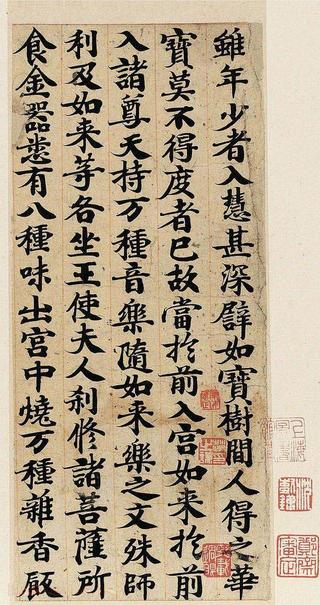 雖年少者入慧甚深譬如寶樹間人得之華
寶莫不得度者巳故當扵前入宫如来扵前
入諸尊天持万種音樂隨如来樂之文殊師
利及如来等各坐王使夫人刹修諸菩薩所
食金器悉有八種味出宫中燒万種雜香厭
鄭齋
審定